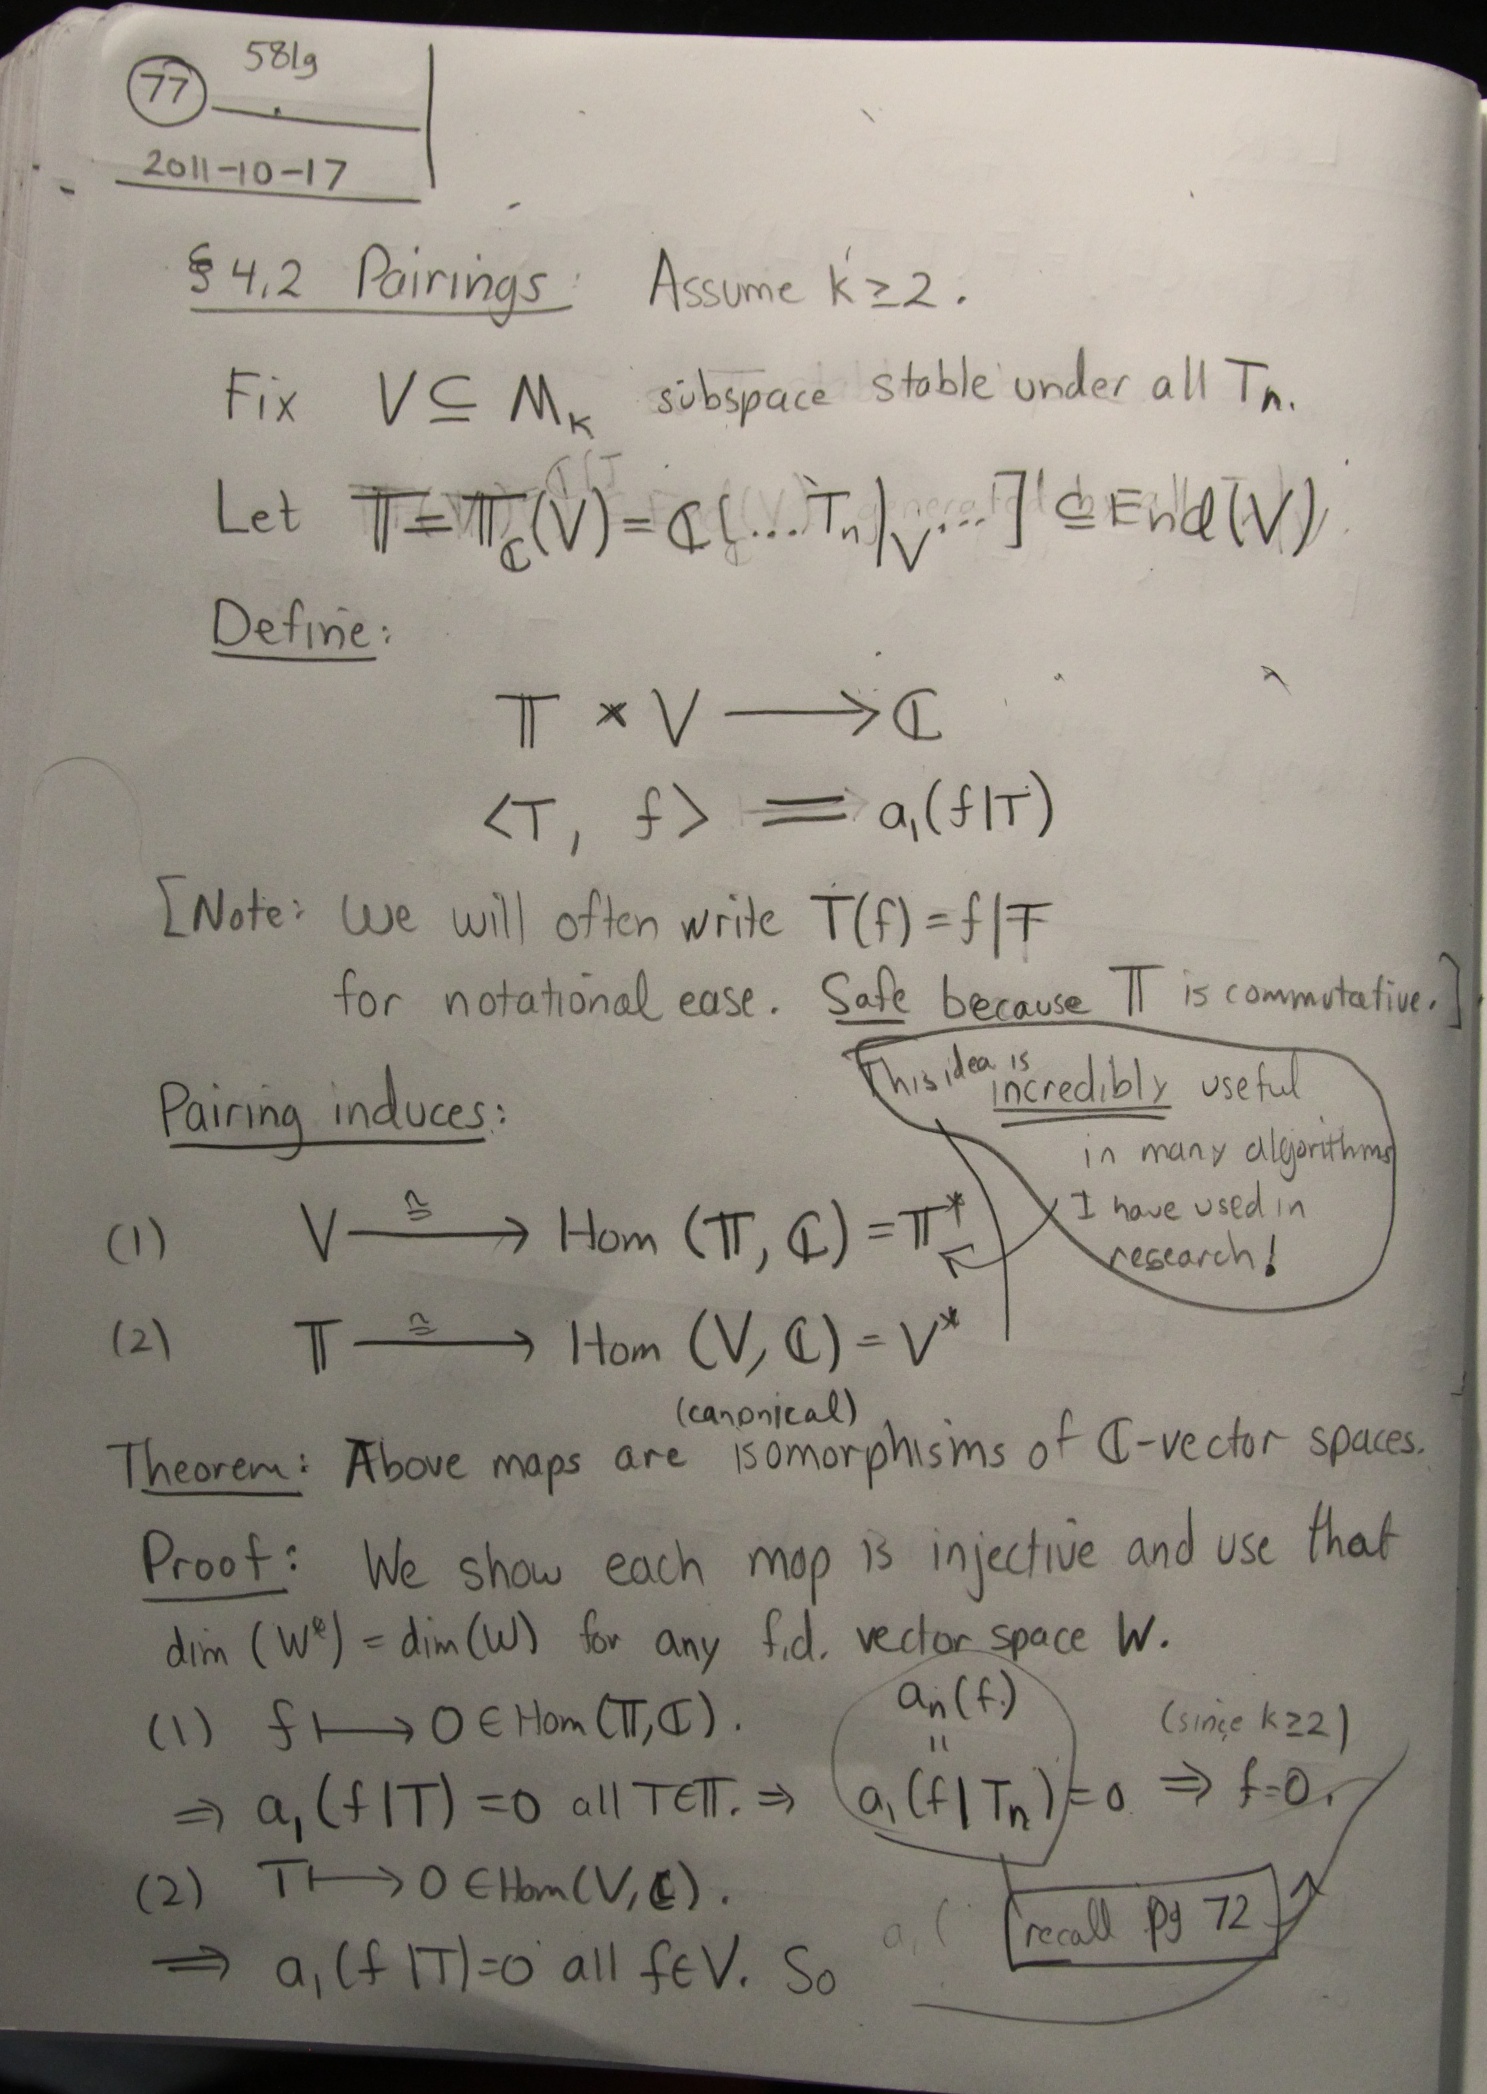 77 581g
2011-10-17
§4.2 Pairings: Assume k≥2.
Fix V⊆M_k subspace stable under all T_n.
Let 𝕋=𝕋_ℂ(V)=ℂ[...T_n|_V...] ⊆End(V)
Define:
𝕋 × V ⟶ ℂ
<T, f> = a_1(f|T)
[Note: We will often write T(f)=f|T
for notational ease. Safe because 𝕋 is commutative.]
This idea is
incredibly useful
in many algorithms
I have used in
research!
Pairing induces:
(1) V ≅⟶ Hom (𝕋, ℂ) = 𝕋*
(2) 𝕋 ≅⟶ Hom (V, ℂ) = V*
(canonical)
Theorem: Above maps are isomorphisms of ℂ-vector spaces.
Proof: We show each map is injective and use that
dim (W*) = dim(W) for any f.d. vector space W.
a_n(f)
(1) f ⟼ 0 ∈ Hom(𝕋,ℂ). = (since k≥2)
⇒ a_1(f|T)=0 all T∈𝕋. ⇒ a_1(f|T_n)=0 ⇒ f=0.
(2) T ⟼ 0 ∈ Hom(V,ℂ).
recall pg 72
⇒ a_1(f|T)=0 all f∈V. So